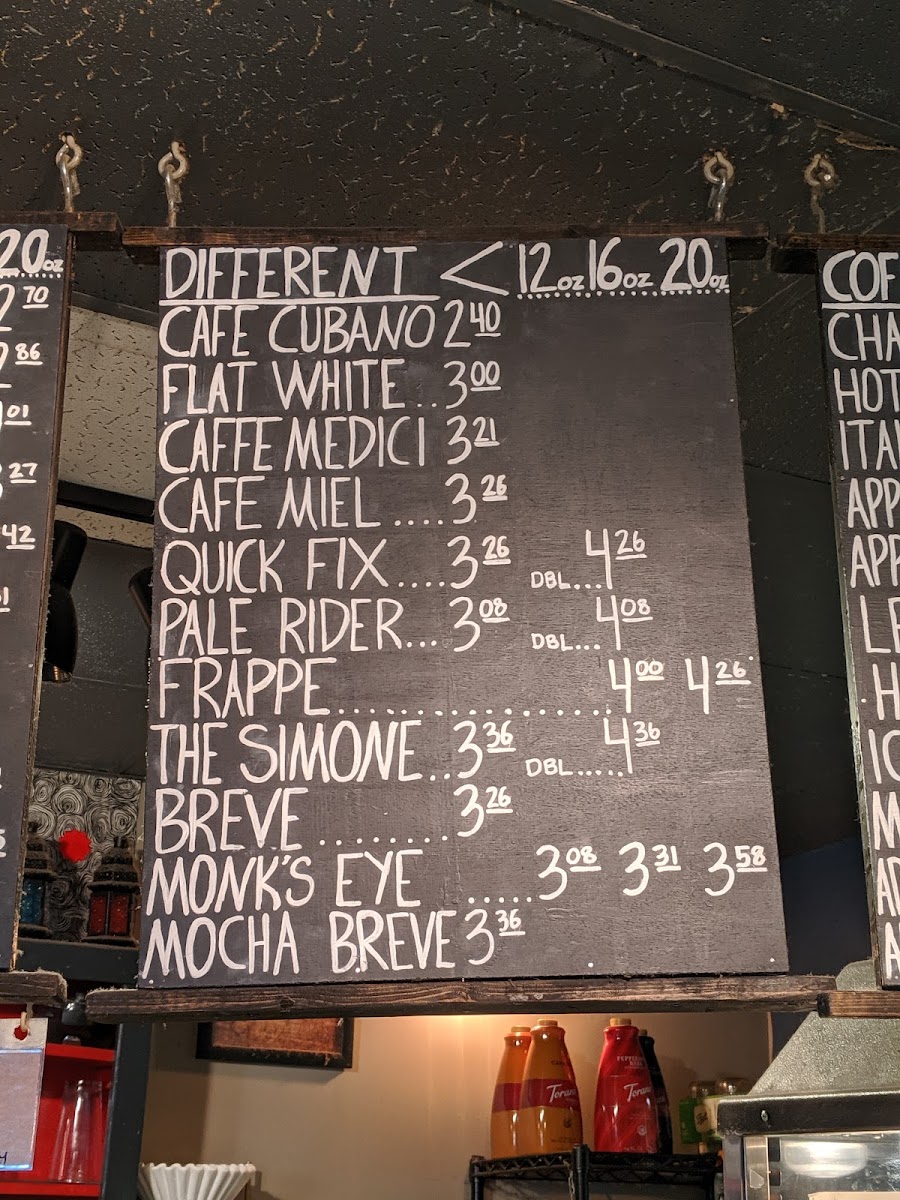 20oz
70
86
01
27
42
DIFFERENT < 12oz 16oz 20oz
CAFE CUBANO 2 40
FLAT WHITE .. 3 00
CAFFE MEDICI 3 21
CAFE MIEL .... 3 26
QUICK FIX.... 3 26 DBL... 4 26
PALE RIDER... 3 08 DBL... 4 08
FRAPPE.................. 4 00 4 26
THE SIMONE.. 3 36 DBL..... 4 36
BREVE ........ 3 26
MONK'S EYE ..... 3 08 3 31 3 58
MOCHA BREVE 3 36
COF
CHA
HOT
ITA
APP
APP
LE
H
IC
M
AD
A
Torani
Torani